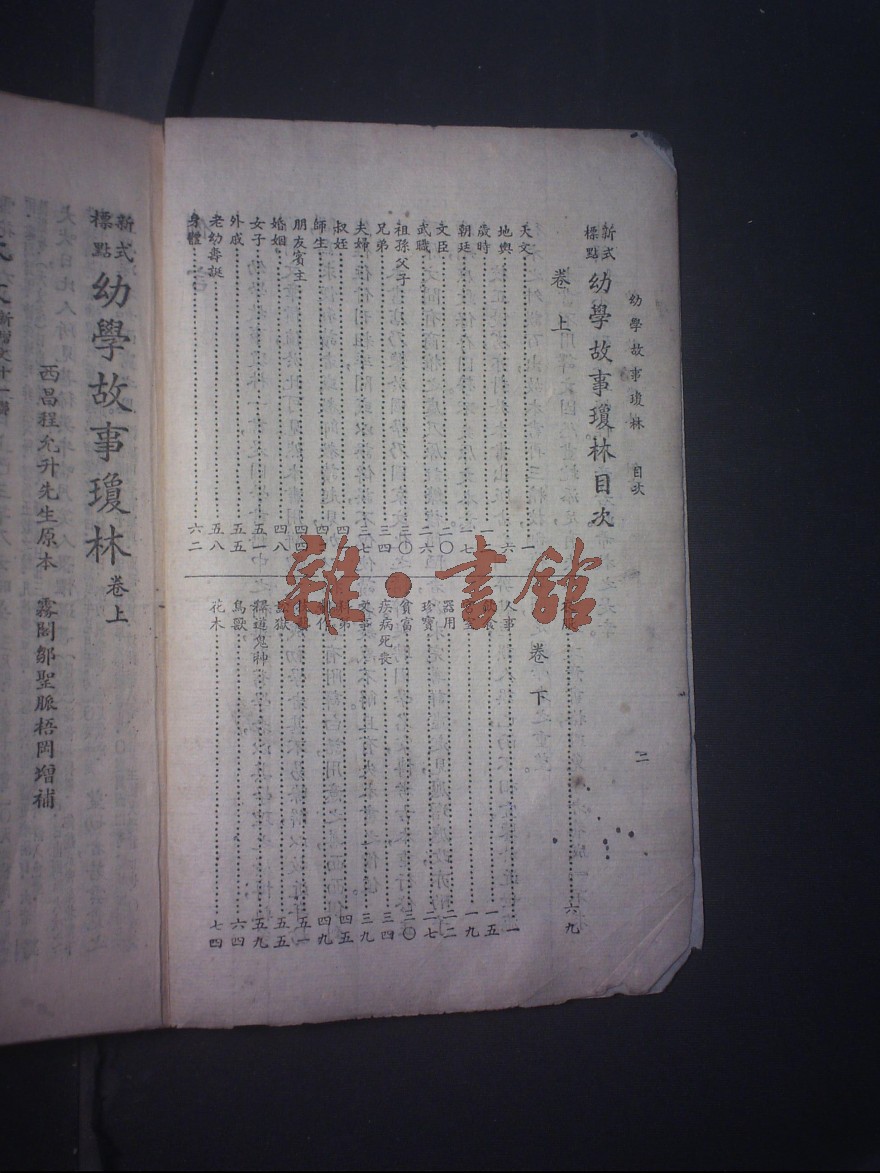 幼學故事瓊林 目次
二
新式標點 幼學故事瓊林目次
卷上
天文 一
地輿 六
歲時
朝廷 一七
文臣 二〇
武職 二六
祖孫父子 三〇
兄弟 三四
夫婦 三七
叔姪
師生
朋友賓主 四四
婚姻 四八
女子 五一
外戚 五五
老幼壽誕 五八
身體 六二
六九
卷下
人事 一
一五
一九
器用 二二
珍寶 二七
貧富 三〇
疾病死喪 三四
文事 三九
科第 四五
四九
五一
訟獄 五五
釋道鬼神 五九
鳥獸 六四
花木 七四
新式標點 幼學故事瓊林 卷上
西昌程允升先生原本 霧閣鄒聖脈梧岡增補
雜·書館